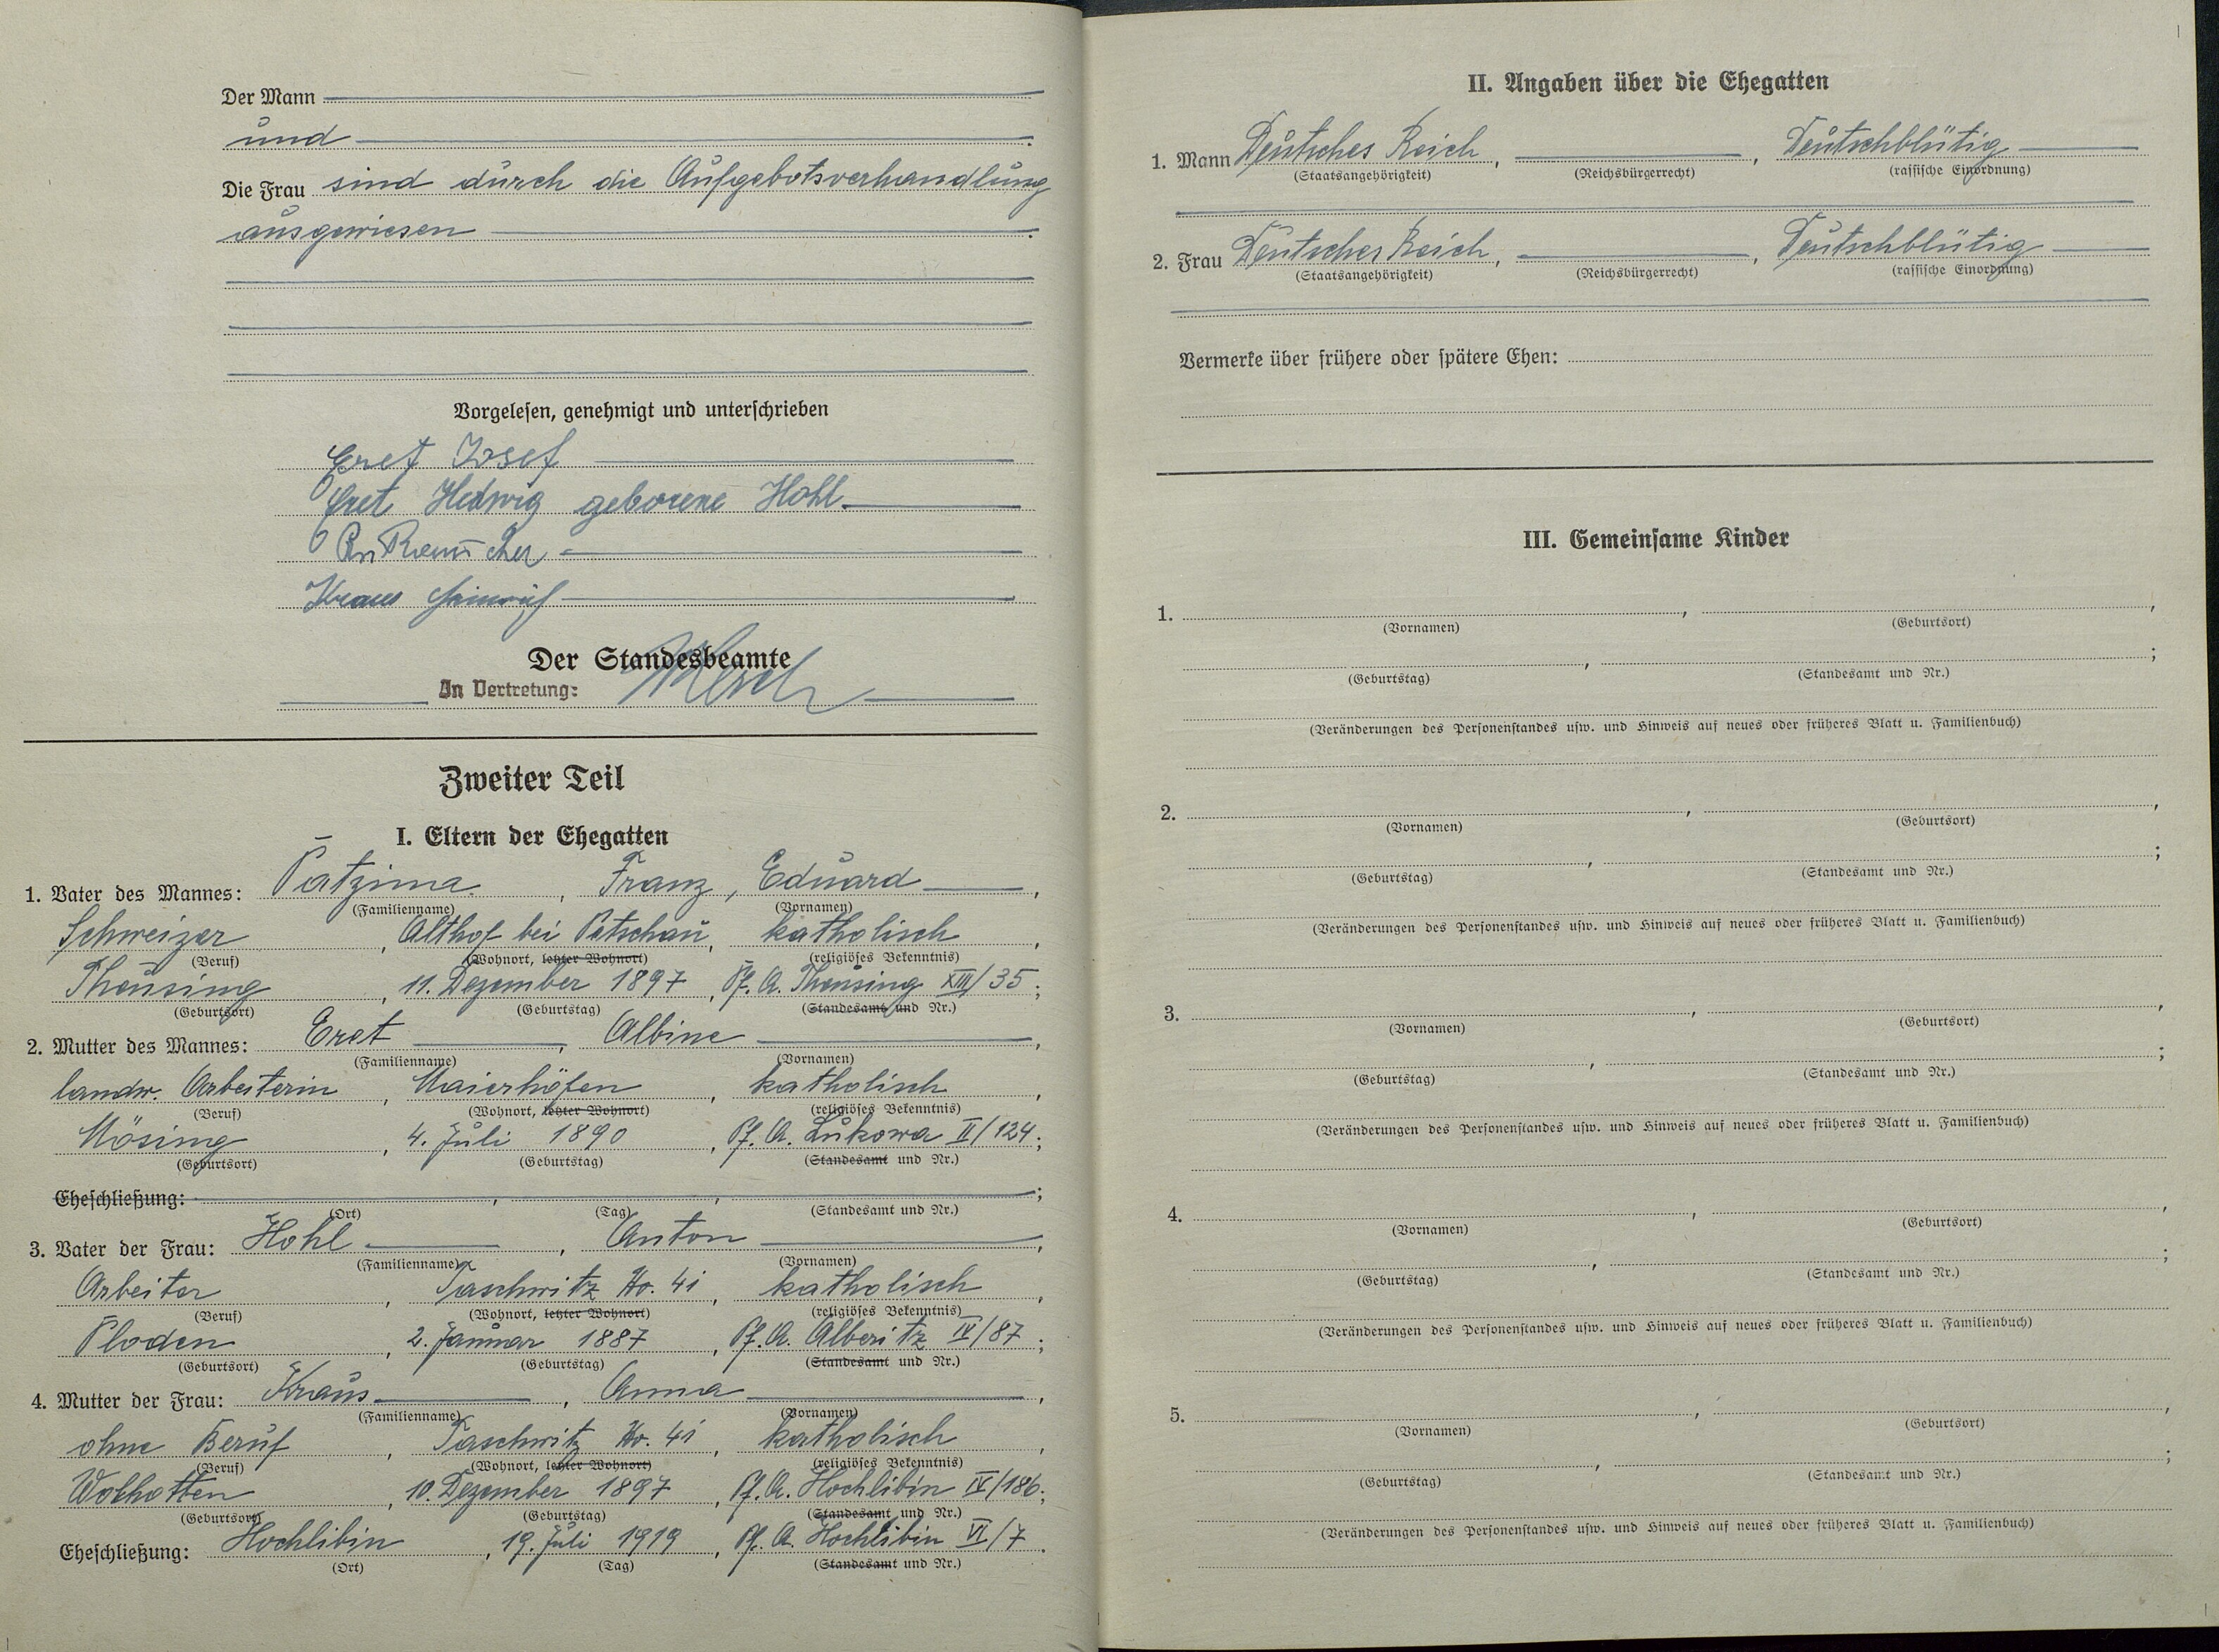 Der Mann
und
Die Frau sind durch die Aufgebotsverhandlung
ausgewiesen
Vorgelesen, genehmigt und unterschrieben
Eret Josef
Eret Hedwig geborene Hohl
Kraus Heinrich
Der Standesbeamte
In Vertretung:
Zweiter Teil
I. Eltern der Ehegatten
1. Vater des Mannes: Patzima, Franz, Eduard,
(Familienname) (Vornamen)
Schweizer, Althof bei Petschau, katholisch,
(Beruf) (Wohnort, letzter Wohnort) (religiöses Bekenntnis)
Theusing, 11. Dezember 1897, Pf. A. Theusing XIII/35;
(Geburtsort) (Geburtstag) (Standesamt und Nr.)
2. Mutter des Mannes: Eret, Albine,
(Familienname) (Vornamen)
landw. Arbeiterin, Maierhöfen, katholisch,
(Beruf) (Wohnort, letzter Wohnort) (religiöses Bekenntnis)
Mösing, 4. Juli 1890, Pf. A. Lukowa II/124;
(Geburtsort) (Geburtstag) (Standesamt und Nr.)
Eheschließung: , , ;
(Ort) (Tag) (Standesamt und Nr.)
3. Vater der Frau: Hohl, Anton,
(Familienname) (Vornamen)
Arbeiter, Taschwitz No. 41, katholisch,
(Beruf) (Wohnort, letzter Wohnort) (religiöses Bekenntnis)
Ploden, 2. Januar 1887, Pf. A. Alberitz IV/87;
(Geburtsort) (Geburtstag) (Standesamt und Nr.)
4. Mutter der Frau: Kraus, Anna,
(Familienname) (Vornamen)
ohne Beruf, Taschwitz No. 41, katholisch,
(Beruf) (Wohnort, letzter Wohnort) (religiöses Bekenntnis)
Wohotten, 10. Dezember 1897, Pf. A. Hochlibin IV/186;
(Geburtsort) (Geburtstag) (Standesamt und Nr.)
Eheschließung: Hochlibin, 19. Juli 1919, Pf. A. Hochlibin VI/7.
(Ort) (Tag) (Standesamt und Nr.)
II. Angaben über die Ehegatten
1. Mann Deutsches Reich, , Deutschblütig
(Staatsangehörigkeit) (Reichsbürgerrecht) (rassische Einordnung)
2. Frau Deutsches Reich, , Deutschblütig
(Staatsangehörigkeit) (Reichsbürgerrecht) (rassische Einordnung)
Vermerke über frühere oder spätere Ehen:
III. Gemeinsame Kinder
1. , ,
(Vornamen) (Geburtsort)
, ;
(Geburtstag) (Standesamt und Nr.)
(Veränderungen des Personenstandes usw. und Hinweis auf neues oder früheres Blatt u. Familienbuch)
2. , ,
(Vornamen) (Geburtsort)
, ;
(Geburtstag) (Standesamt und Nr.)
(Veränderungen des Personenstandes usw. und Hinweis auf neues oder früheres Blatt u. Familienbuch)
3. , ,
(Vornamen) (Geburtsort)
, ;
(Geburtstag) (Standesamt und Nr.)
(Veränderungen des Personenstandes usw. und Hinweis auf neues oder früheres Blatt u. Familienbuch)
4. , ,
(Vornamen) (Geburtsort)
, ;
(Geburtstag) (Standesamt und Nr.)
(Veränderungen des Personenstandes usw. und Hinweis auf neues oder früheres Blatt u. Familienbuch)
5. , ,
(Vornamen) (Geburtsort)
, ;
(Geburtstag) (Standesamt und Nr.)
(Veränderungen des Personenstandes usw. und Hinweis auf neues oder früheres Blatt u. Familienbuch)